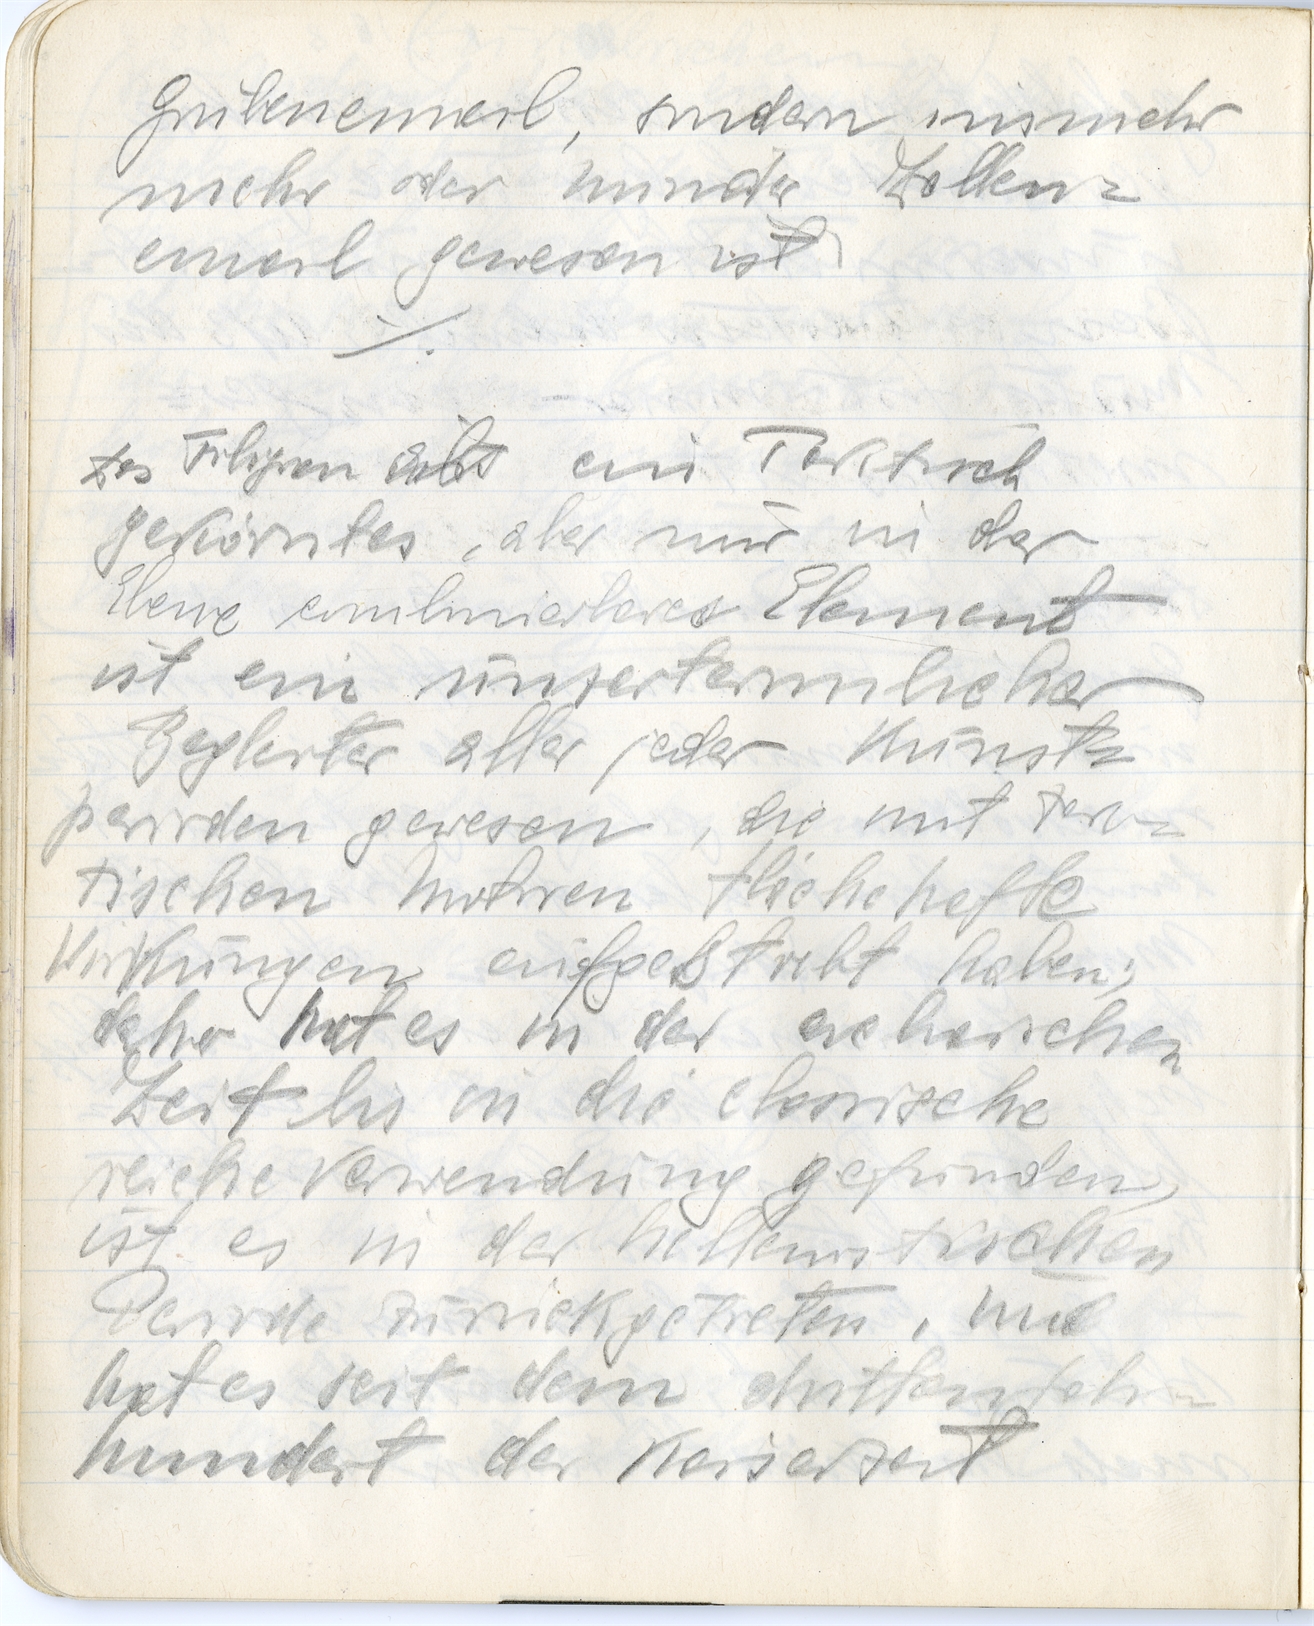 Grubenemail, sondern vielmehr
mehr oder minder Zellen=
email gewesen ist
Das Filigran als ein Taktisch
gekörntes, aber nur in der
Ebene combinierbares Element
ist ein unzertrennlicher
Begleiter aller jeder Kunst=
perioden gewesen, die mit
tischen Motiven flächehafte
Wirkungen angestrebt haben;
daher hat es in der archaischen
Zeit bis in die classische
reiche Verwendung gefunden,
ist es in der hellenistischen
Periode zurückgetreten, und
hat es seit dem dritten Jahr=
hundert der Kaiserzeit